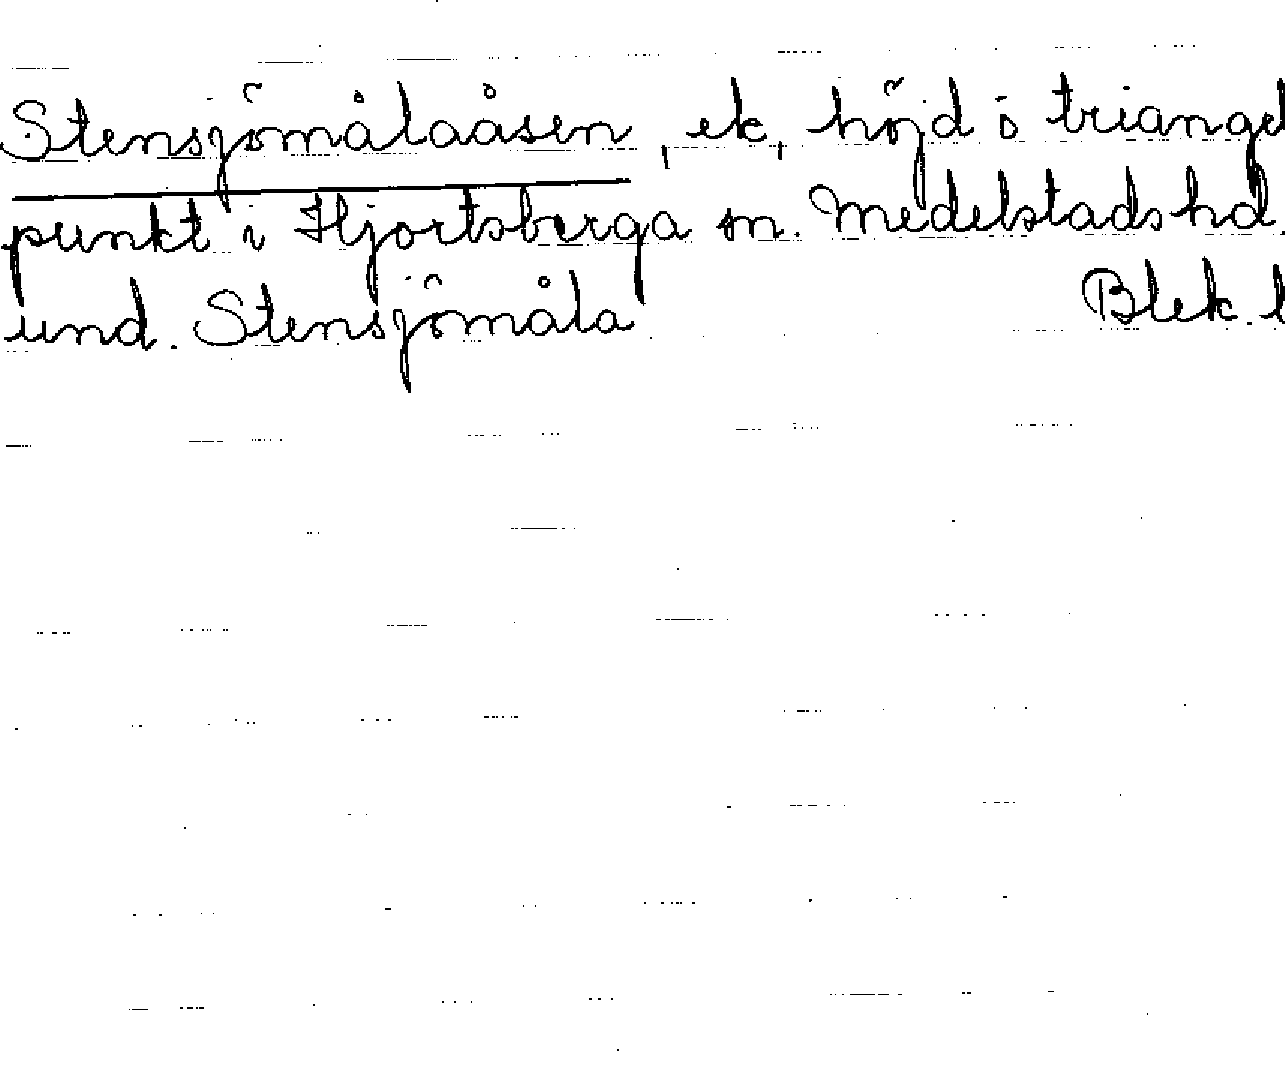 Stensjömålaåsen, ek, höjd o triangel
punkt i Hjortsberga sn. Medelstads hd.
und. Stensjömåla Blek. l